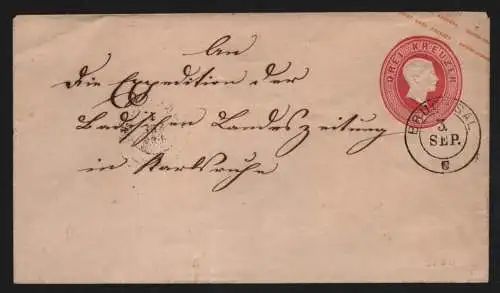 An
Die Expedition der
Badischen Landeszeitung
in Karlsruhe
DREI KREUZER
BRUCHSAL
3
SEP.